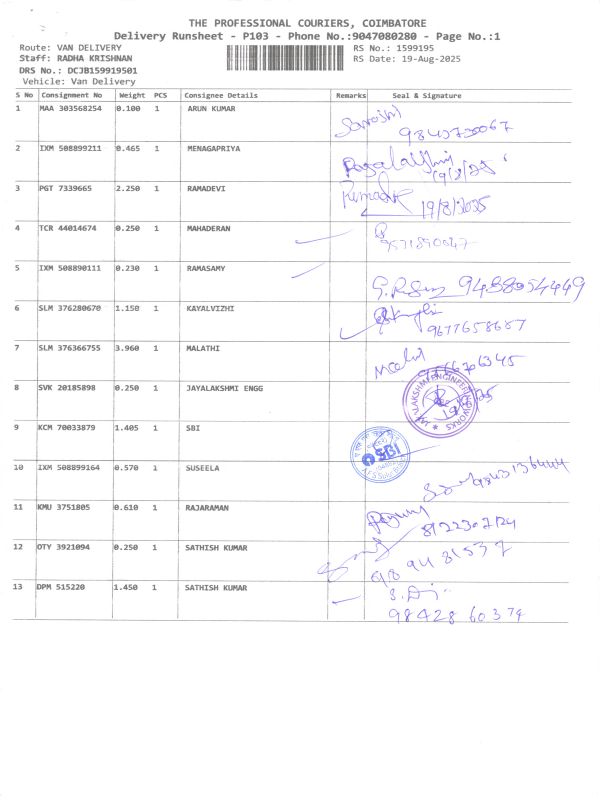 THE PROFESSIONAL COURIERS, COIMBATORE
Delivery Runsheet - P103 - Phone No.:9047080280 - Page No.:1
Route: VAN DELIVERY RS No.: 1599195
Staff: RADHA KRISHNAN RS Date: 19-Aug-2025
DRS No.: DCJB159919501
Vehicle: Van Delivery
S No Consignment No Weight PCS Consignee Details Remarks Seal & Signature
1 MAA 303568254 0.100 1 ARUN KUMAR
2 IXM 508899211 0.465 1 MENAGAPRIYA
19/8/25
3 PGT 7339665 2.250 1 RAMADEVI
19/8/2025
4 TCR 44014674 0.250 1 MAHADERAN
5 IXM 508890111 0.230 1 RAMASAMY
9488054449
6 SLM 376280670 1.150 1 KAYALVIZHI
9677658687
7 SLM 376366755 3.960 1 MALATHI
8 SVK 20185898 0.250 1 JAYALAKSHMI ENGG
JAYALAKSHMI ENGINEERING WORKS
9 KCM 70033879 1.405 1 SBI
SBI
10 IXM 508899164 0.570 1 SUSEELA
11 KMU 3751805 0.610 1 RAJARAMAN
8122307124
12 OTY 3921094 0.250 1 SATHISH KUMAR
13 DPM 515220 1.450 1 SATHISH KUMAR
98428 60374